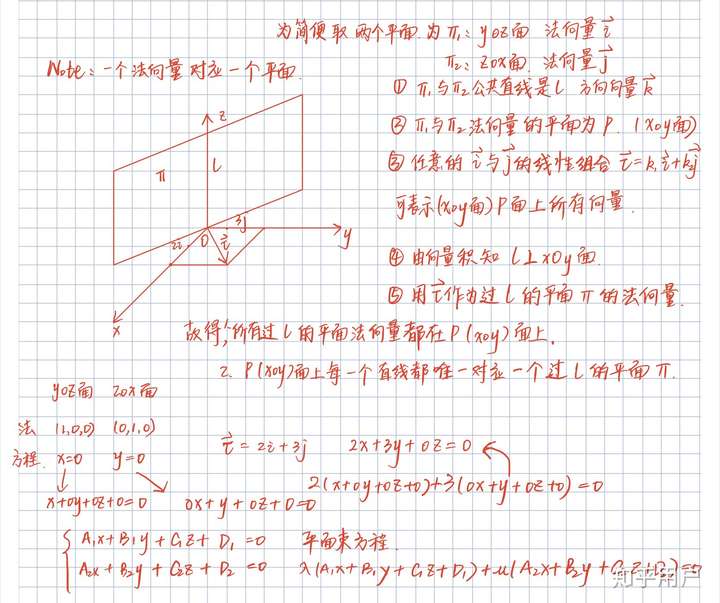 为简便取两个平面为 π₁: yoz面 法向量 i⃗
π₂: zox面. 法向量 j⃗
Note: 一个法向量对应一个平面.
① π₁与π₂公共直线是 l 方向向量 k⃗
② π₁与π₂法向量的平面为 P. (xoy面)
③ 任意的 i⃗ 与 j⃗ 的线性组合 τ⃗ = k₁i⃗ + k₂j⃗
可表示(xoy面) P面上所有向量.
④ 由向量积知 l⊥xoy面.
⑤ 用τ⃗作为过 l 的平面 π 的法向量.
z
π
l
3j
2i
O
τ⃗
y
x
故得: 1, 所有过 l 的平面法向量都在 P (xoy) 面上.
2. P (xoy)面上每一个直线都唯一对应一个过 l 的平面 π.
yoz面 zox面
法 (1,0,0) (0,1,0)
τ⃗ = 2i+3j 2x+3y+0z=0
方程. x=0 y=0
2(x+0y+0z+0)+3(0x+y+0z+0)=0
x+0y+0z+0=0 0x+y+0z+0=0
A₁x+B₁y+C₁z+D₁=0 平面束方程.
A₂x+B₂y+C₂z+D₂=0 λ(A₁x+B₁y+C₁z+D₁)+μ(A₂x+B₂y+C₂z+D₂)=0
知乎用户